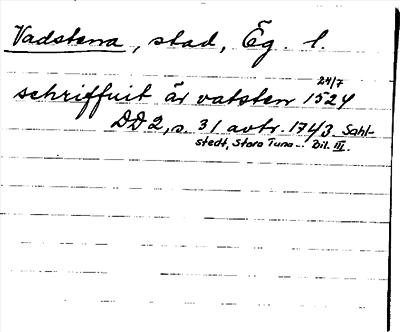 Vadstena, stad, Ög. l.
24/7
schriffuit är vatsten 1524
DD 2, s. 31 avtr. 1743 Sahl-
stedt, Stora Tuna... Bil. III.